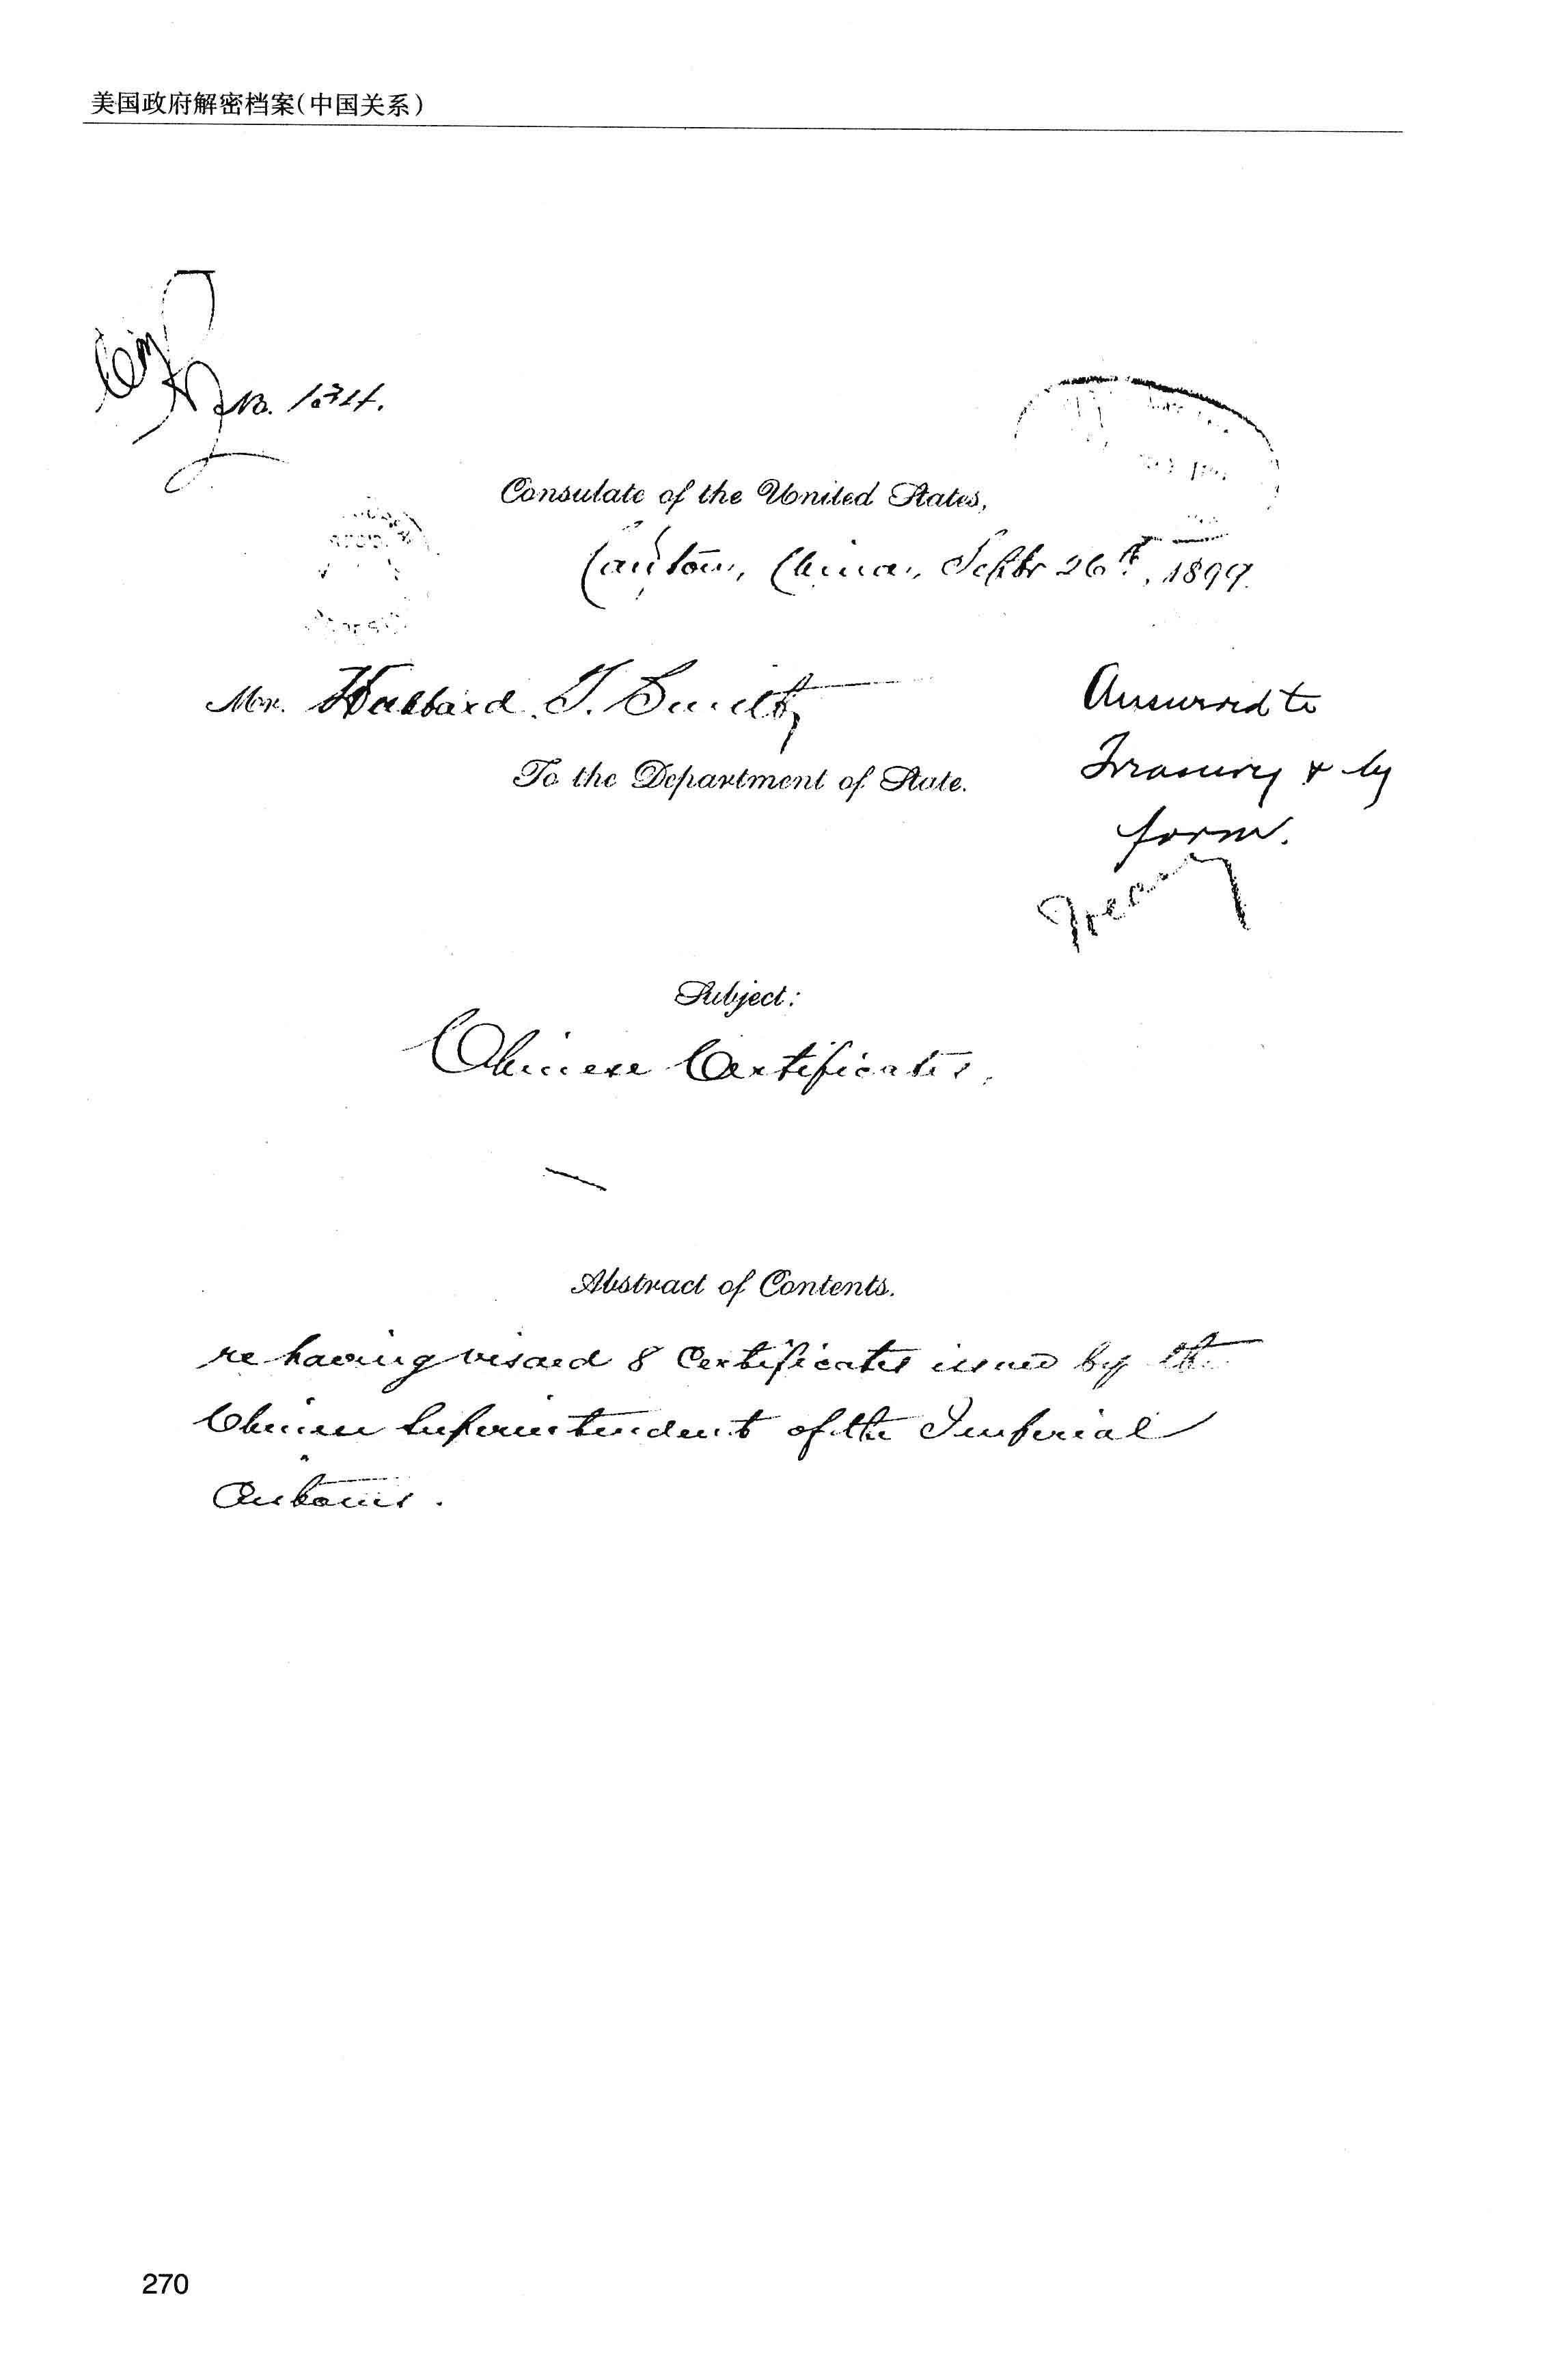 美国政府解密档案(中国关系)
No. 134.
Consulate of the United States,
Canton, China, Septbr 26th, 1899.
Mr. Hubbard T. Smith
To the Department of State.
Answered to
Treasury & by
form.
Treasury
Subject:
Chinese Certificates.
Abstract of Contents.
re having visaed 8 Certificates issued by the
Chinese Superintendent of the Imperial
Customs.
270